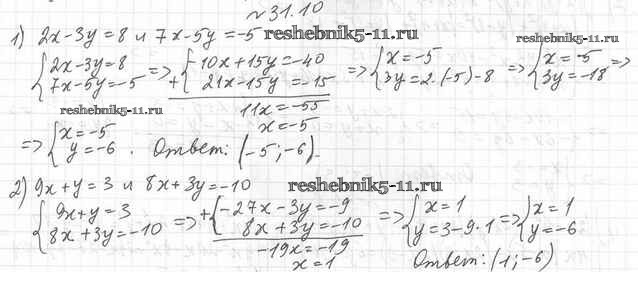 №31.10
1) 2x-3y=8 и 7x-5y=-5 reshebnik5-11.ru
{2x-3y=8 7x-5y=-5 => +{-10x+15y=-40 21x-15y=-15 => {x=-5 3y=2·(-5)-8 => {x=-5 3y=-18 =>
11x=-55
x=-5
reshebnik5-11.ru
=> {x=-5 y=-6. Ответ: (-5;-6).
2) 9x+y=3 и 8x+3y=-10 reshebnik5-11.ru
{9x+y=3 8x+3y=-10 => +{-27x-3y=-9 8x+3y=-10 => {x=1 y=3-9·1 => {x=1 y=-6
-19x=-19
x=1
Ответ: (1;-6)